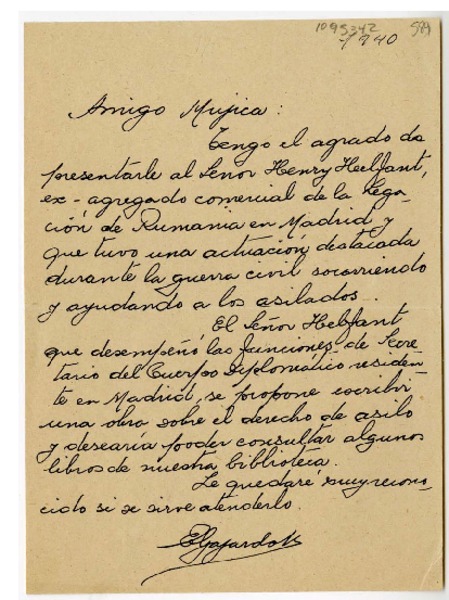 1095342 589
-1940
Amigo Mujica:
Tengo el agrado de
presentarle al Señor Henry Helfant,
ex-agregado comercial de la Lega-
ción de Rumania en Madrid y
que tuvo una actuación destacada
durante la guerra civil socorriendo
y ayudando a los asilados.
El Señor Helfant
que desempeñó las funciones de Secre
tario del Cuerpo Diplomático residen
te en Madrid, se propone escribir
una obra sobre el derecho de asilo
y desearía poder consultar algunos
libros de nuestra biblioteca.
Le quedaré muy recono-
cido si se sirve atenderlo.